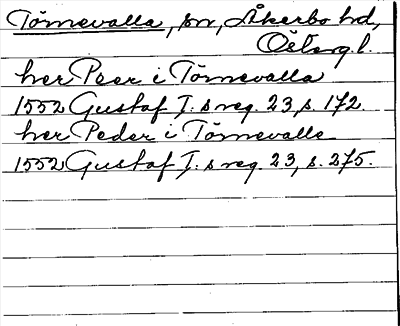 Törnevalla, sn, Åkerbo hd,
Östergl.
her Peer i Törnevalla
1552 Gustaf I:s reg. 23, s. 172.
her Peder i Törnevalle
1552 Gustaf I:s reg. 23, s. 275.